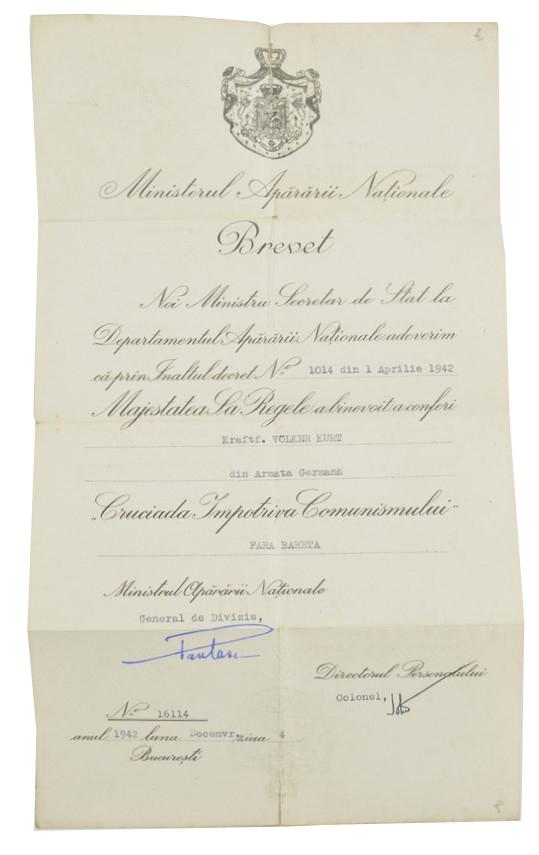 Ministerul Apărării Naționale
Brevet
Noi Ministru Secretar de Stat la
Departamentul Apărării Naționale adeverim
că prin Inaltul decret No. 1014 din 1 Aprilie 1942
Majestatea Sa Regele a binevoit a conferi
Kraftf. VOLKER KURT
din Armata Germană
"Cruciada Impotriva Comunismului"
FARA BARETA
Ministrul Apărării Naționale
General de Divizie,
Pantasi
Directorul Personalului
Colonel,
No. 16114
anul 1942 luna Decemvr. ziua 4
București